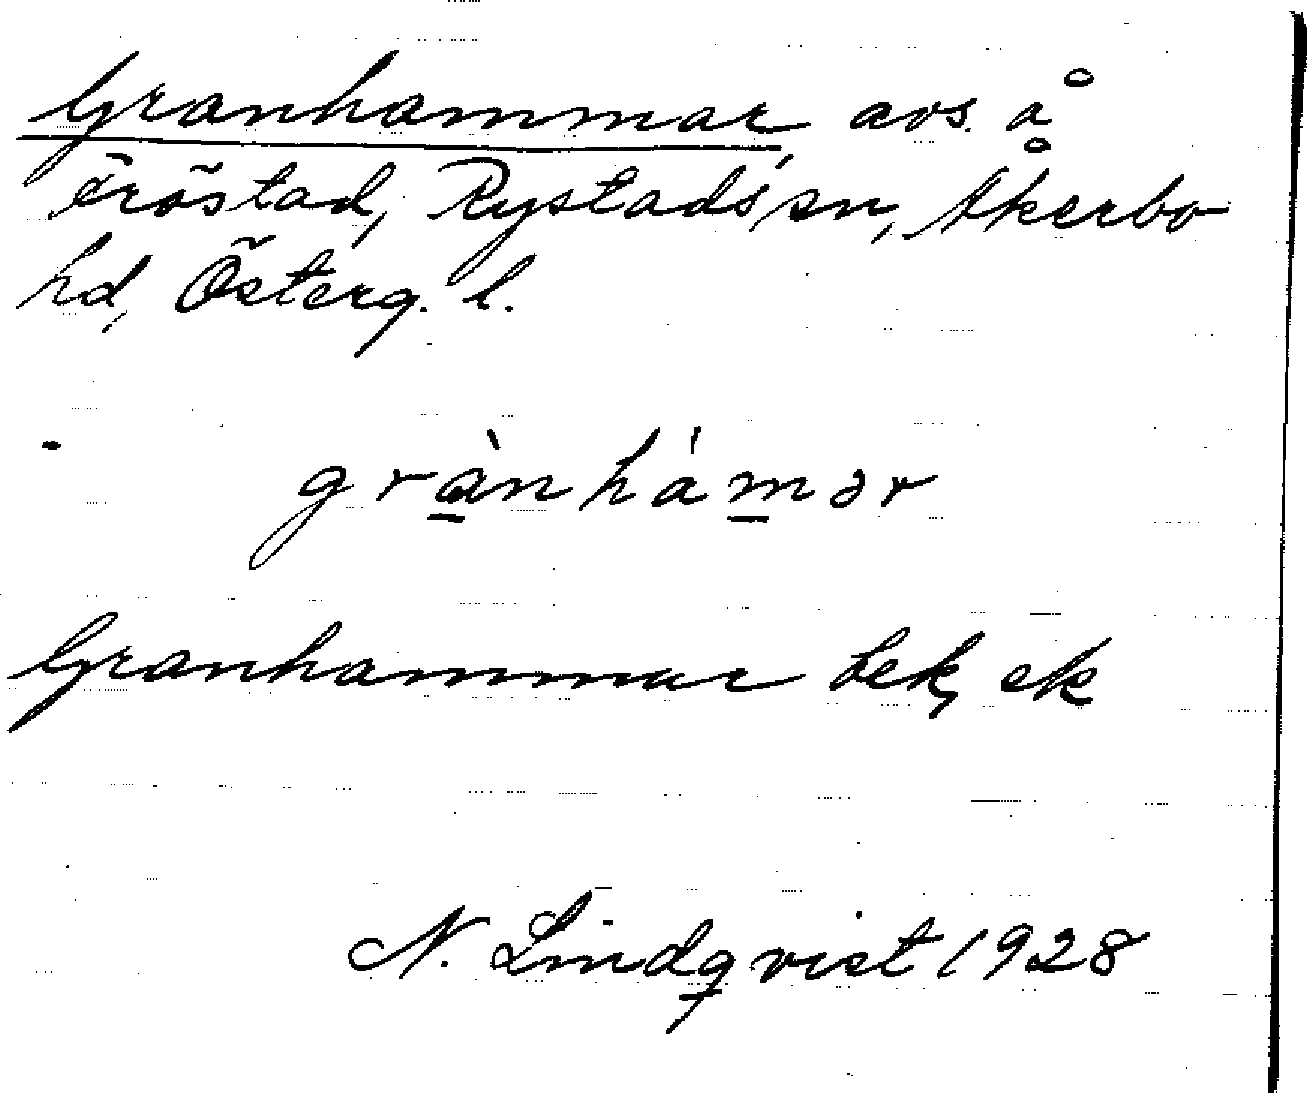 Granhammar avs. å
Fröstad, Rystads sn, Åkerbo
hd, Österg. l.
grànhámər
Granhammar bek, ek
N. Lindqvist 1928